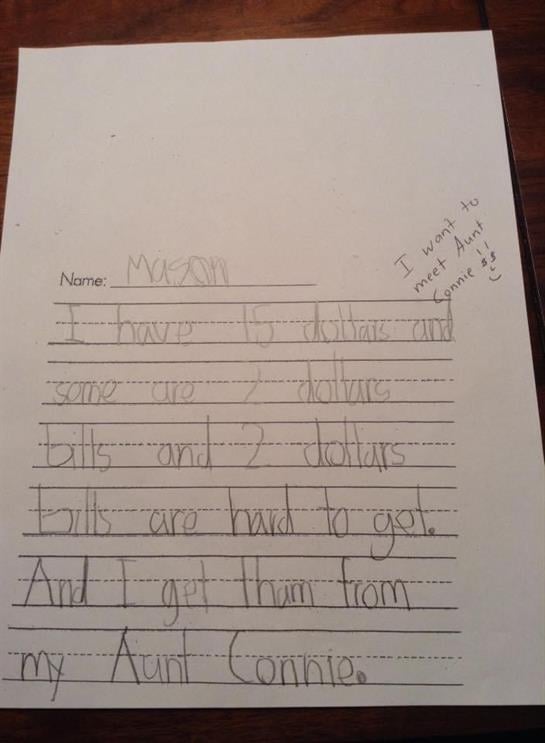 Name: Mason
I want to
meet Aunt
Connie !!
$$
I have 15 dollars and
some are 2 dollars
bills and 2 dollars
bills are hard to get.
And I get tham from
my Aunt Connie.